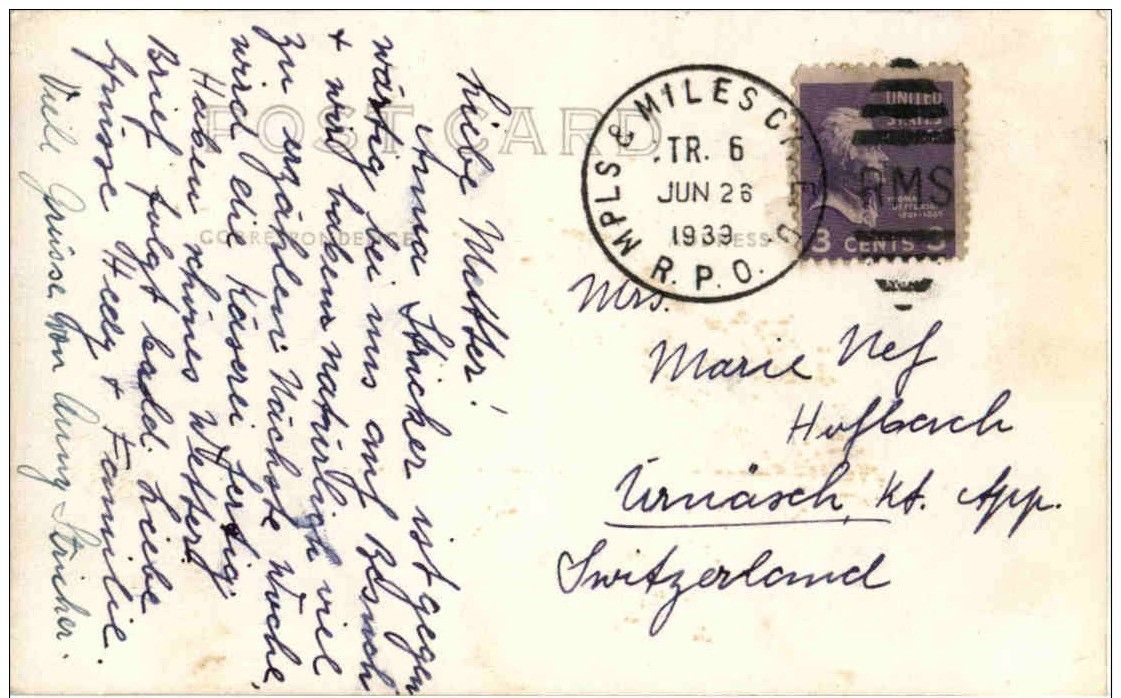 POST CARD
CORRESPONDENCE
ADDRESS
Liebe Mutter!
Anna Stricker ist gegen
wärtig bei uns auf Besuch
+ wir haben natürlich viel
zu erzählen. Nächste Woche,
wird die Käserei fertig.
Haben schönes Wetter.
Brief folgt bald. Liebe
Grüsse Hedy + Familie.
Viele Grüsse von Anny Stricker.
MPLS & MILES CY E.D.
TR. 6
JUN 26
1939
R.P.O.
RMS
UNITED
STATES
THOMAS
JEFFERSON
1801-1809
3 CENTS 3
Mrs.
Marie Nef
Hofbach
Urnäsch, Kt. App.
Switzerland